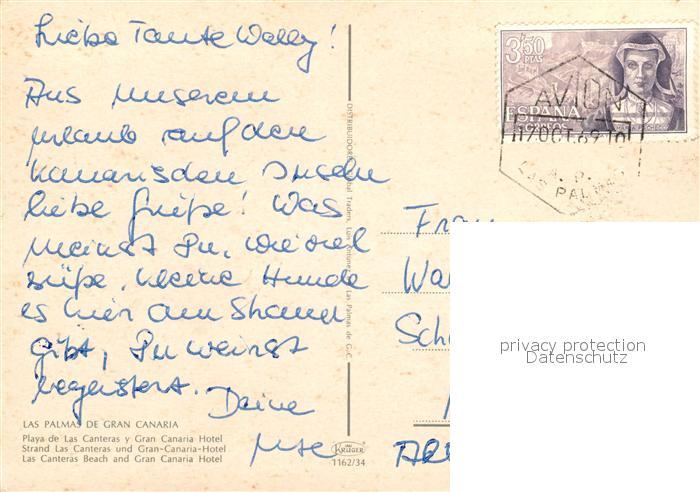 Liebe Tante Wally!
Aus unserem
Urlaub auf den
kanarischen Inseln
liebe Grüße! Was
meinst Du, wieviel
süße, kleine Hunde
es hier am Strand
gibt, Du wärst
begeistert.
Deine
Ute
LAS PALMAS DE GRAN CANARIA
Playa de Las Canteras y Gran Canaria Hotel
Strand Las Canteras und Gran-Canaria-Hotel
Las Canteras Beach and Gran Canaria Hotel
DISTRIBUIDORES Global Traders, Las Palmas de G.C.
KRÜGER
1162/34
3,50
PTAS
ESPAÑA
CORREOS
AVION
17 OCT. 69
A. P.
LAS PALMAS
Frau
Wa
Sch
privacy protection
Datenschutz